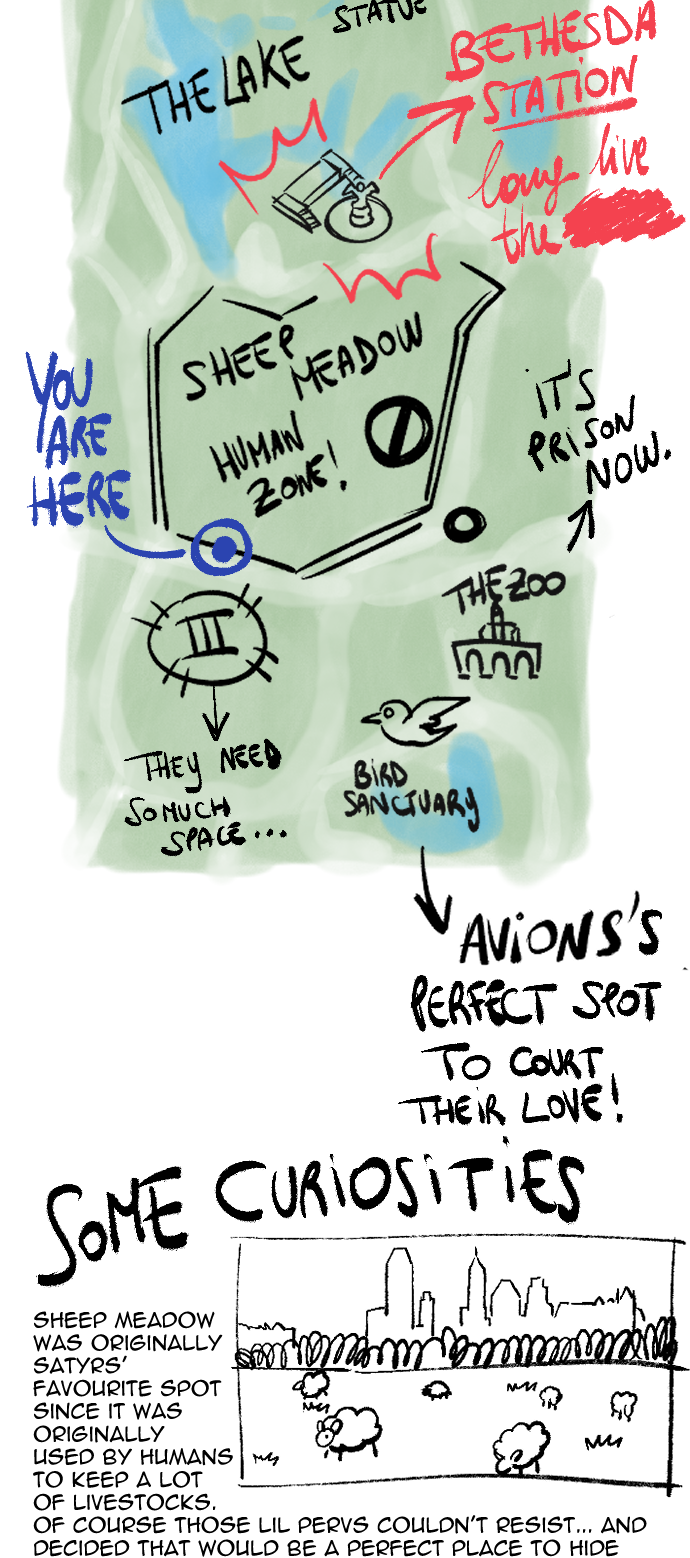 STATUE
THE LAKE
BETHESDA
STATION
long live
the
SHEEP
MEADOW
HUMAN
ZONE!
YOU
ARE
HERE
iT'S
PRiSON
NOW.
THE ZOO
III
THEY NEED
SO MUCH
SPACE...
BiRD
SANCTUARY
AViONS'S
PERFECT SPOT
TO COURT
THEiR LOVE!
SOME CURiOSiTiES
SHEEP MEADOW
WAS ORIGINALLY
SATYRS'
FAVOURITE SPOT
SINCE IT WAS
ORIGINALLY
USED BY HUMANS
TO KEEP A LOT
OF LIVESTOCKS.
OF COURSE THOSE LIL PERVS COULDN'T RESIST... AND
DECIDED THAT WOULD BE A PERFECT PLACE TO HIDE